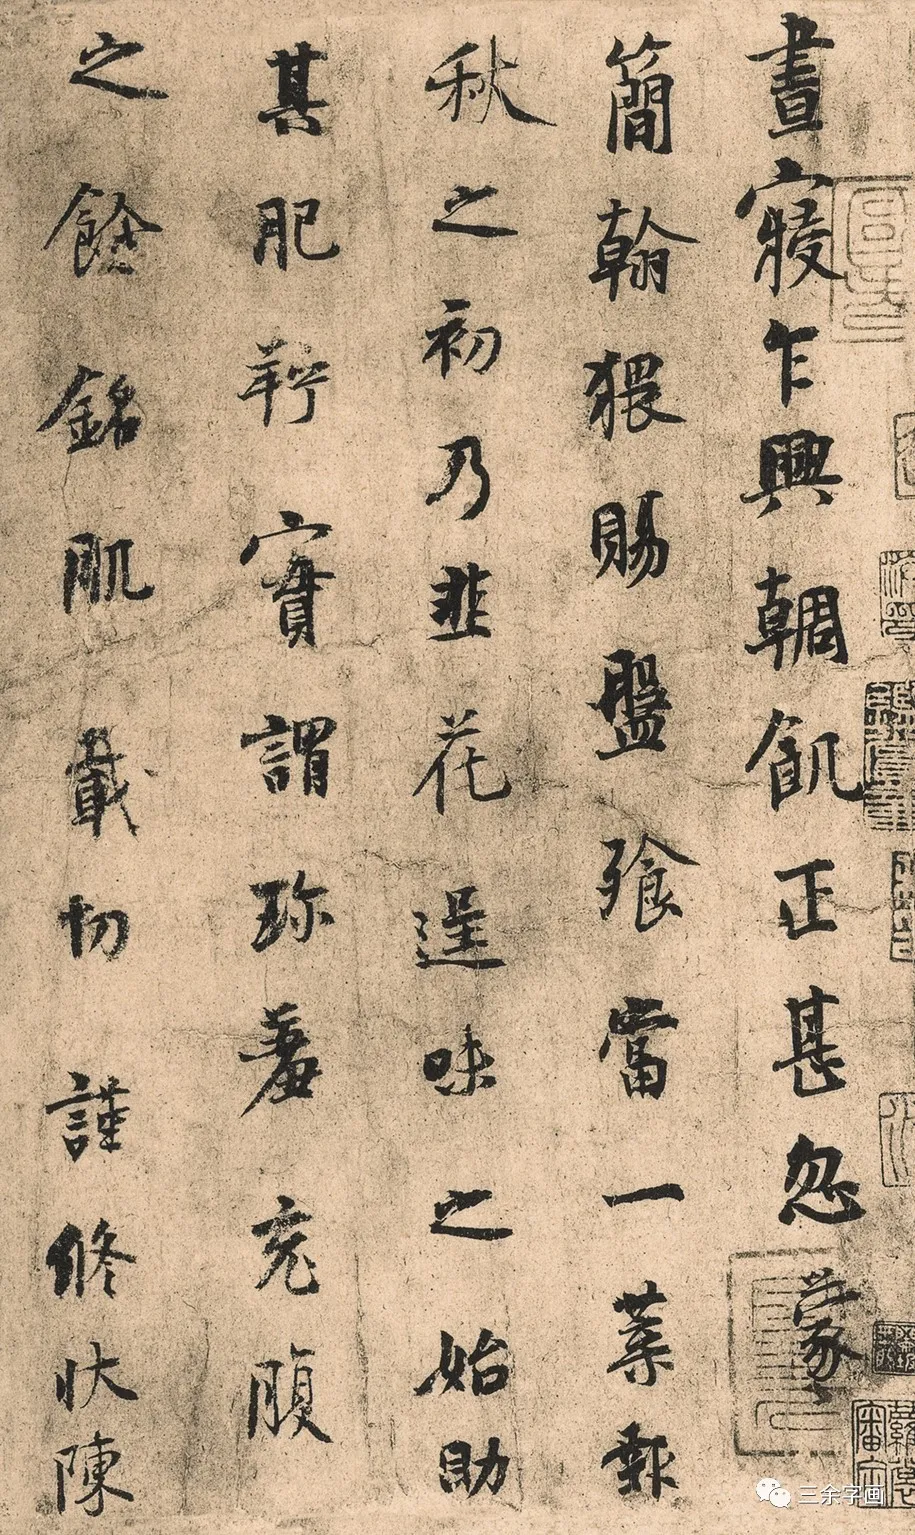 晝寢乍興朝飢正甚忽蒙
簡翰猥賜盤飧當一葉報
秋之初乃韭花逞味之始助
其肥羜實謂珍羞充腹
之餘銘肌載切謹修狀陳
三余字画